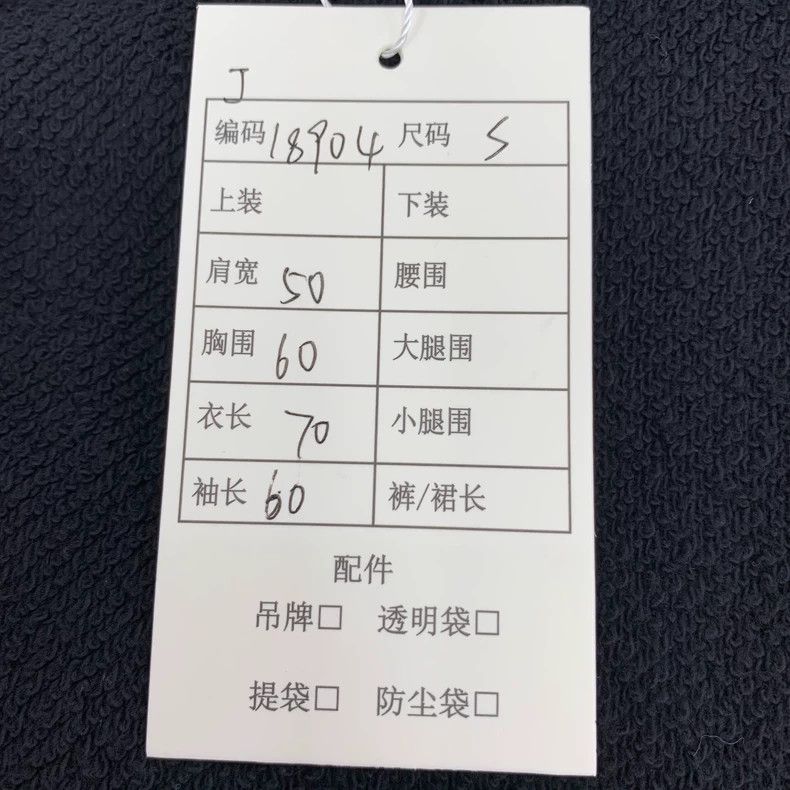 J
编码 18904 尺码 S
上装 下装
肩宽 50 腰围
胸围 60 大腿围
衣长 70 小腿围
袖长 60 裤/裙长
配件
吊牌□ 透明袋□
提袋□ 防尘袋□